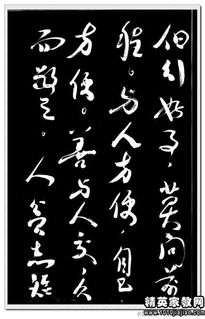 但行好事，莫问前
程。与人方便，自己
方便。善与人交，久
而敬之。人贫志短
精英家教网
www.1010jiajiao.com